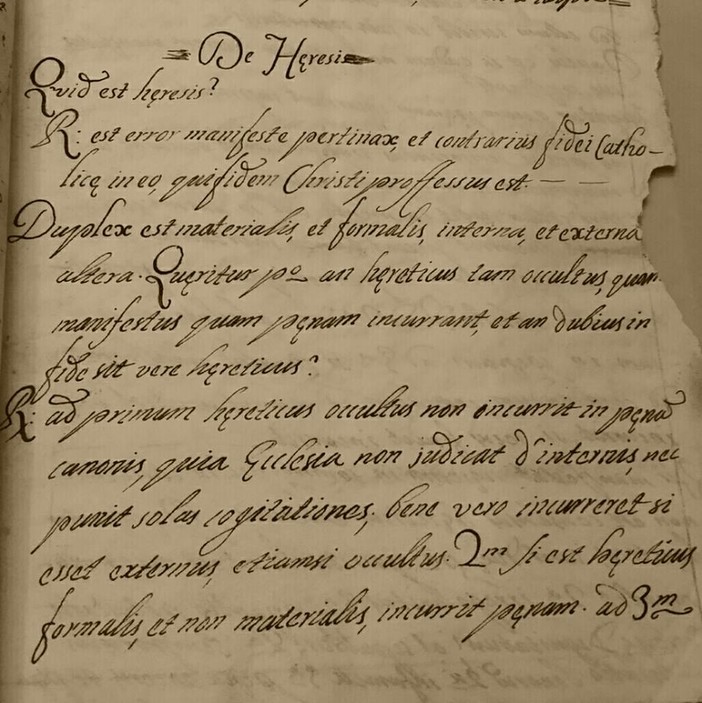 De Hęresis
Quid est hęresis?
R: est error manifeste pertinax, et contrarius fidei Catho-
licę in eo, qui fidem Christi proffessus est. — —
Duplex est materialis, et formalis, interna, et externa
altera. Quęritur pº an hęreticus tam occultus, quam
manifestus quam pęnam incurrant, et an dubius in
fide sit vere hęreticus?
R: ad primum hęreticus occultus non incurrit in pęna
canonis, quia Ecclesia non judicat d'internis, nec
punit solas cogitationes; bene vero incurreret si
esset externus, etiamsi occultus. 2m si est hęreticus
formalis, et non materialis, incurrit pęnam. ad 3m